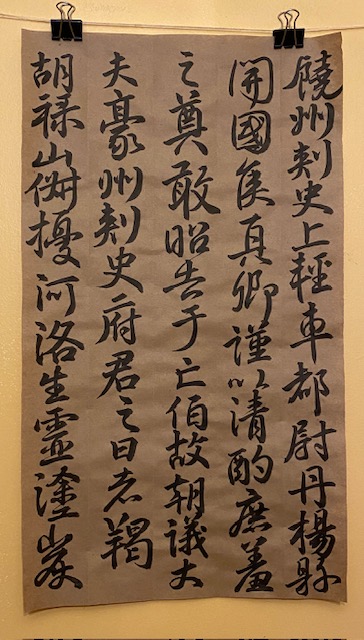 饒州刺史上輕車都尉丹楊縣
開國侯真卿謹以清酌庶羞
之奠敢昭告于亡伯故朝議大
夫豪州刺史府君之曰者羯
胡祿山俶擾河洛生靈塗炭